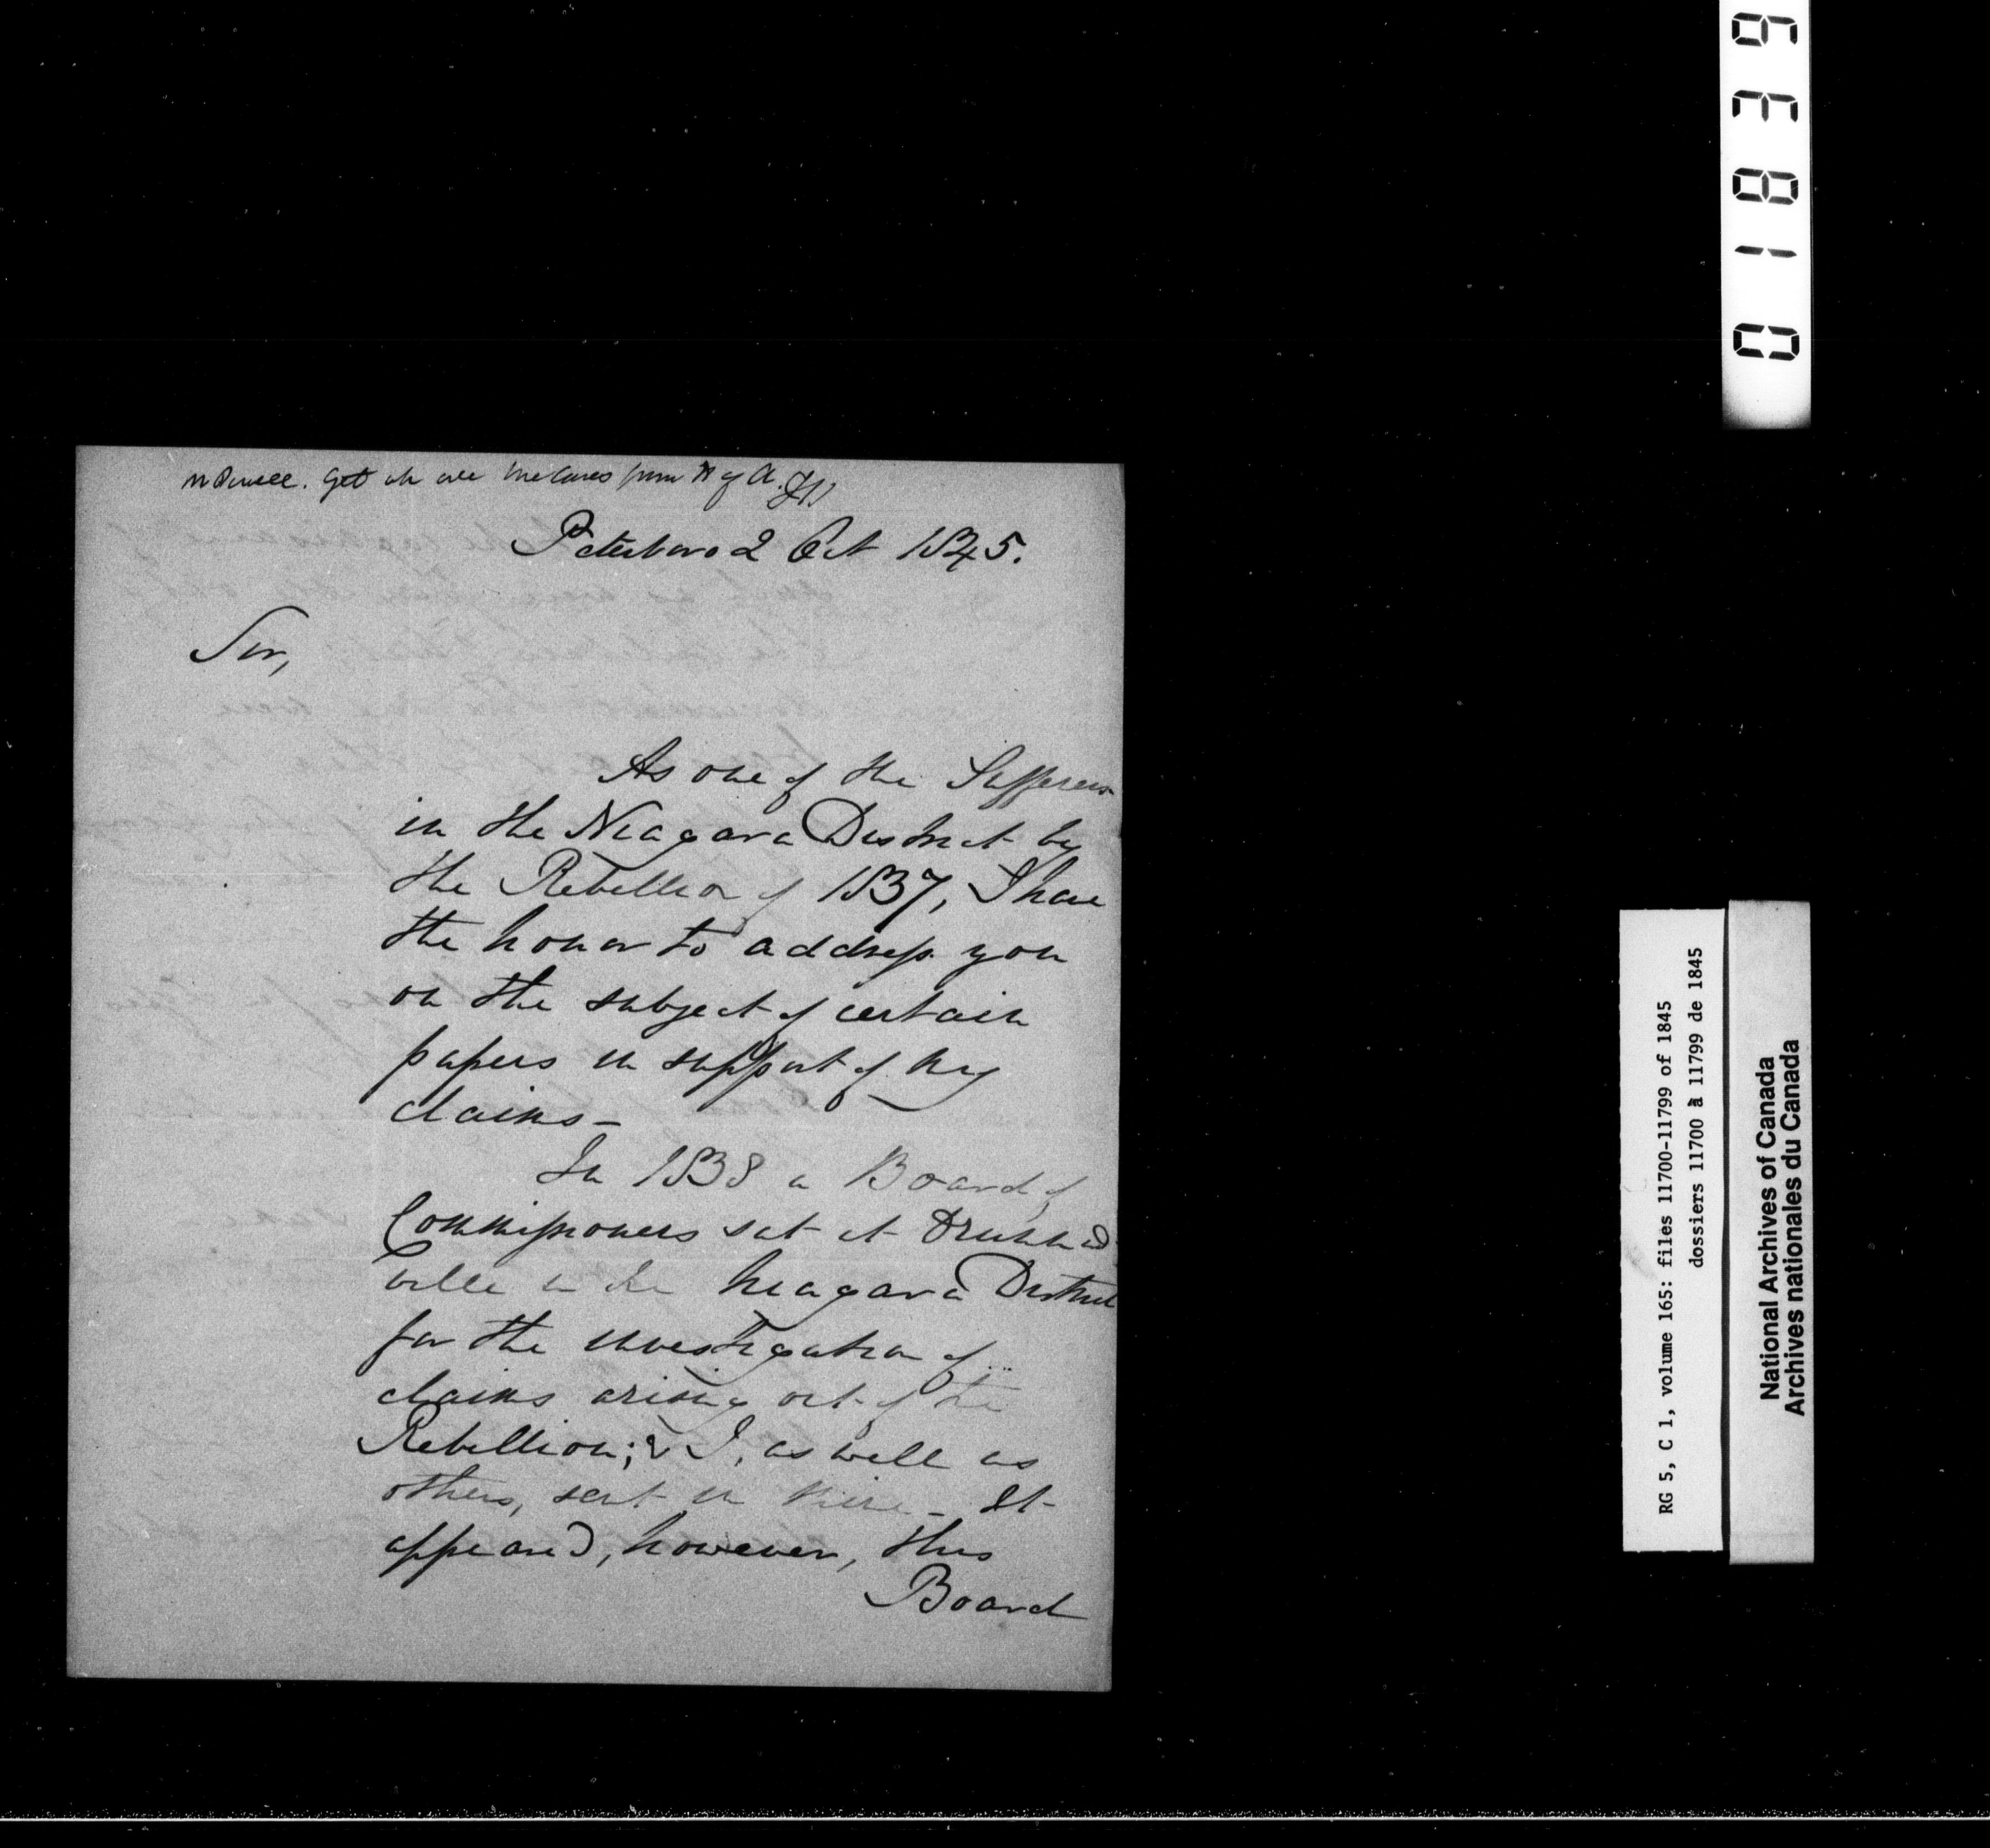 Get
Peterboro 2 Oct 1845.
Sir,
As one of the Sufferers
in the Niagara District by
the Rebellion of 1837, I have
the honor to address you
on the subject of certain
papers in support of my
claims –
In 1838 a Board of
Commissioners sat at Drummond
ville in the Niagara District
for the investigation of
claims arising out of the
Rebellion; & I, as well as
others, sent in mine – It
appeared, however, this
Board
01839
RG 5, C 1, volume 165: files 11700-11799 of 1845
dossiers 11700 à 11799 de 1845
National Archives of Canada
Archives nationales du Canada